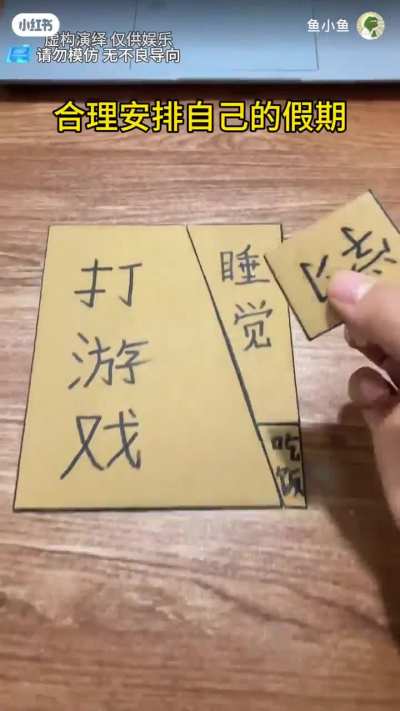 小红书
鱼小鱼
虚构演绎 仅供娱乐
请勿模仿 无不良导向
合理安排自己的假期
打游戏
睡觉
学习
吃饭